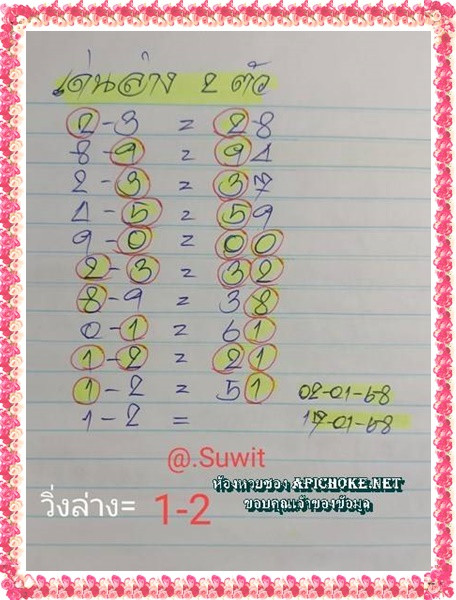 เด่นล่าง 2 ตัว
2-3 = 28
8-9 = 94
2-3 = 37
4-5 = 59
9-0 = 00
2-3 = 32
8-9 = 38
0-1 = 61
1-2 = 21
1-2 = 51 02-01-68
1-2 = 17-01-68
@.Suwit
ห้องหวยซอง APICHOKE.NET
ขอบคุณเจ้าของข้อมูล
วิ่งล่าง= 1-2